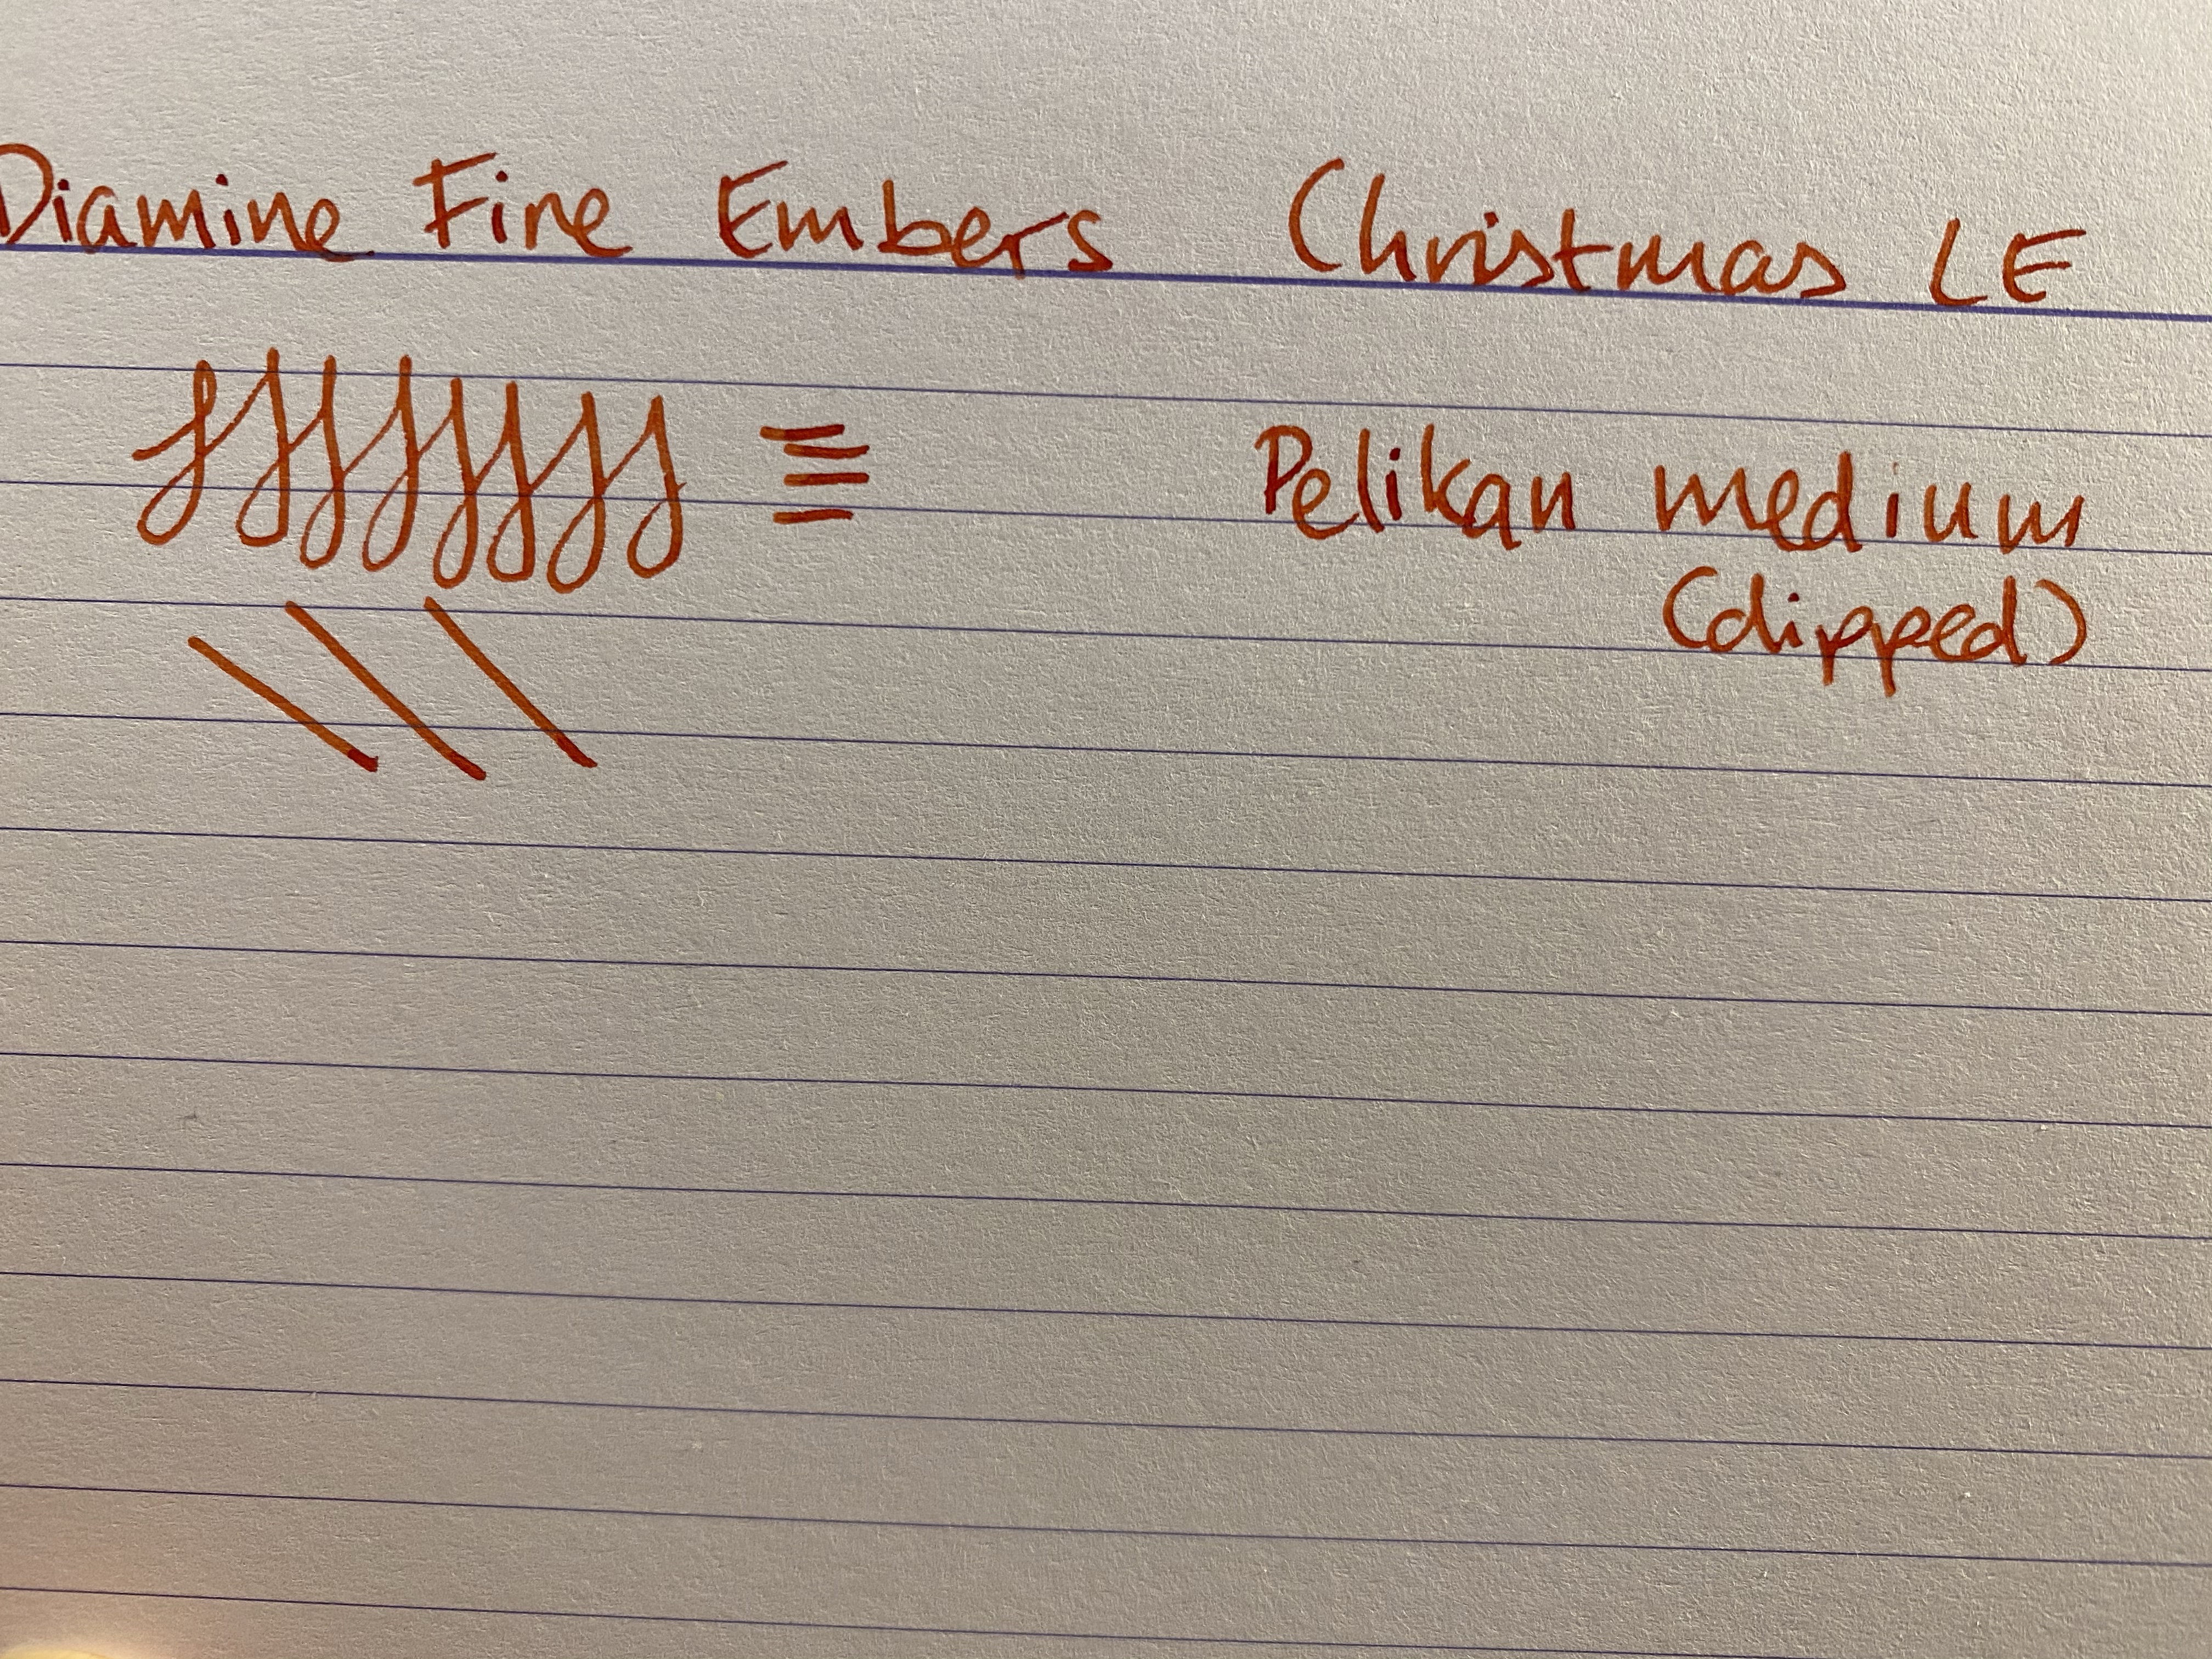 Diamine Fire Embers Christmas LE
Pelikan medium
(dipped)